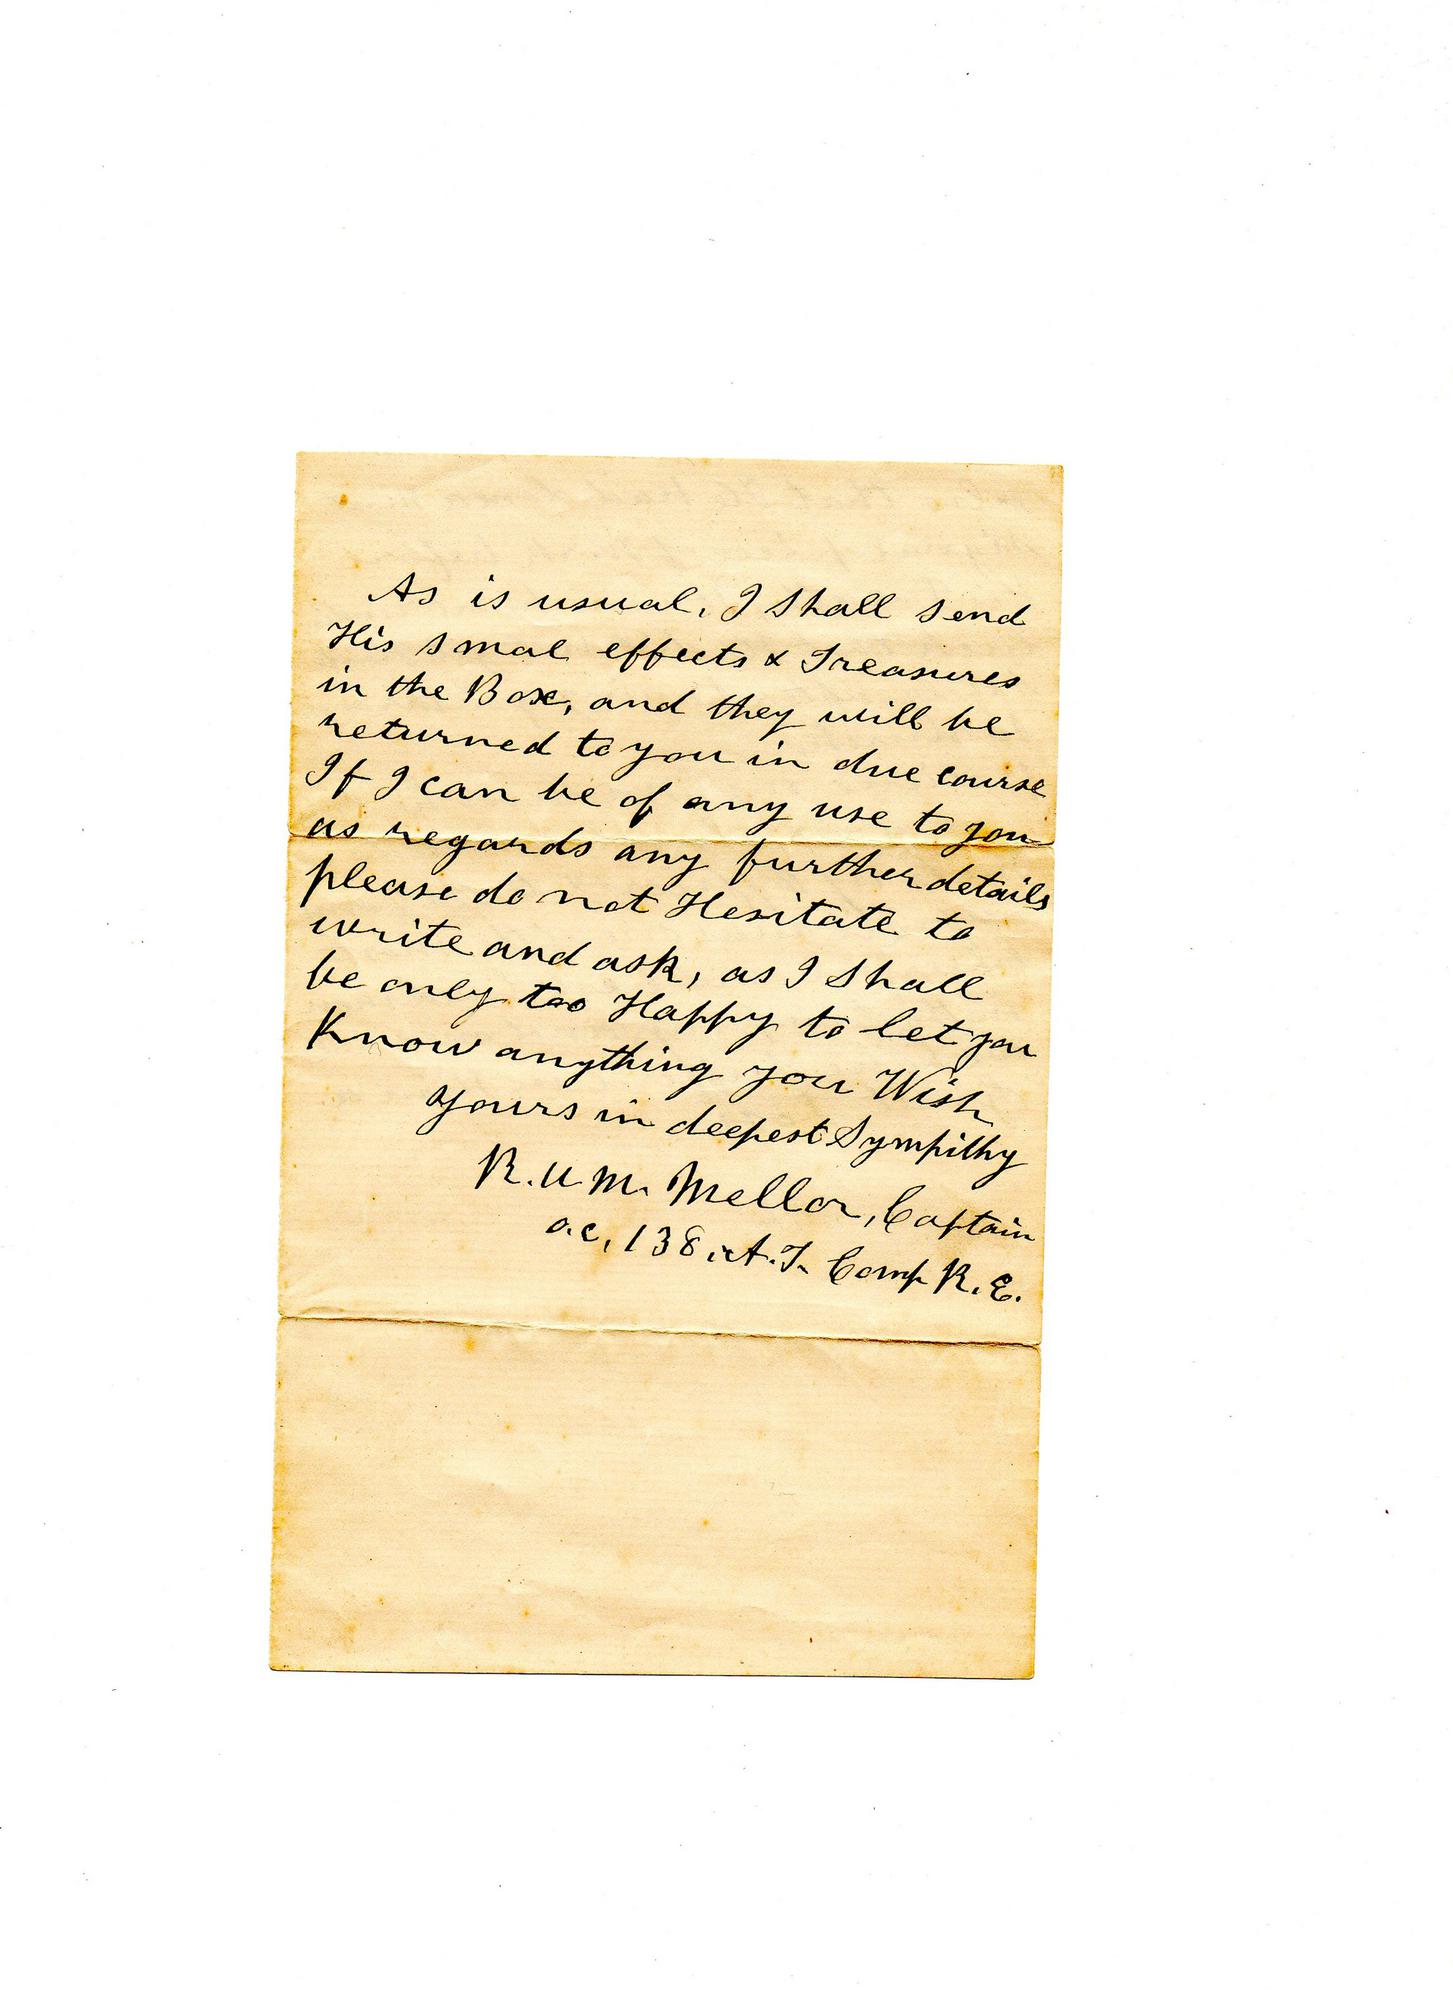 As is usual, I shall send
His smal effects & Treasures
in the Box, and they will be
returned to you in due course
If I can be of any use to you
as regards any further details
please do not Hesitate to
write and ask, as I shall
be only too Happy to let you
Know anything you Wish
yours in deepest Sympithy
R. U. M. Mellor, Captain
o.c, 138, A.T. Comp R.E.